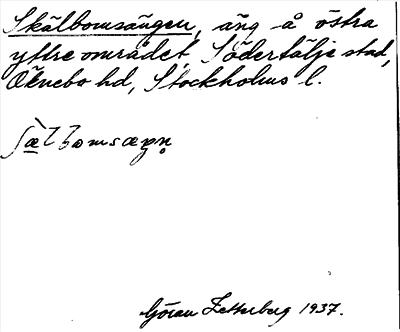 Skälbomsängen, äng å östra
yttre området, Södertälje stad,
Öknebo hd, Stockholms l.
Göran Zetterberg 1937.